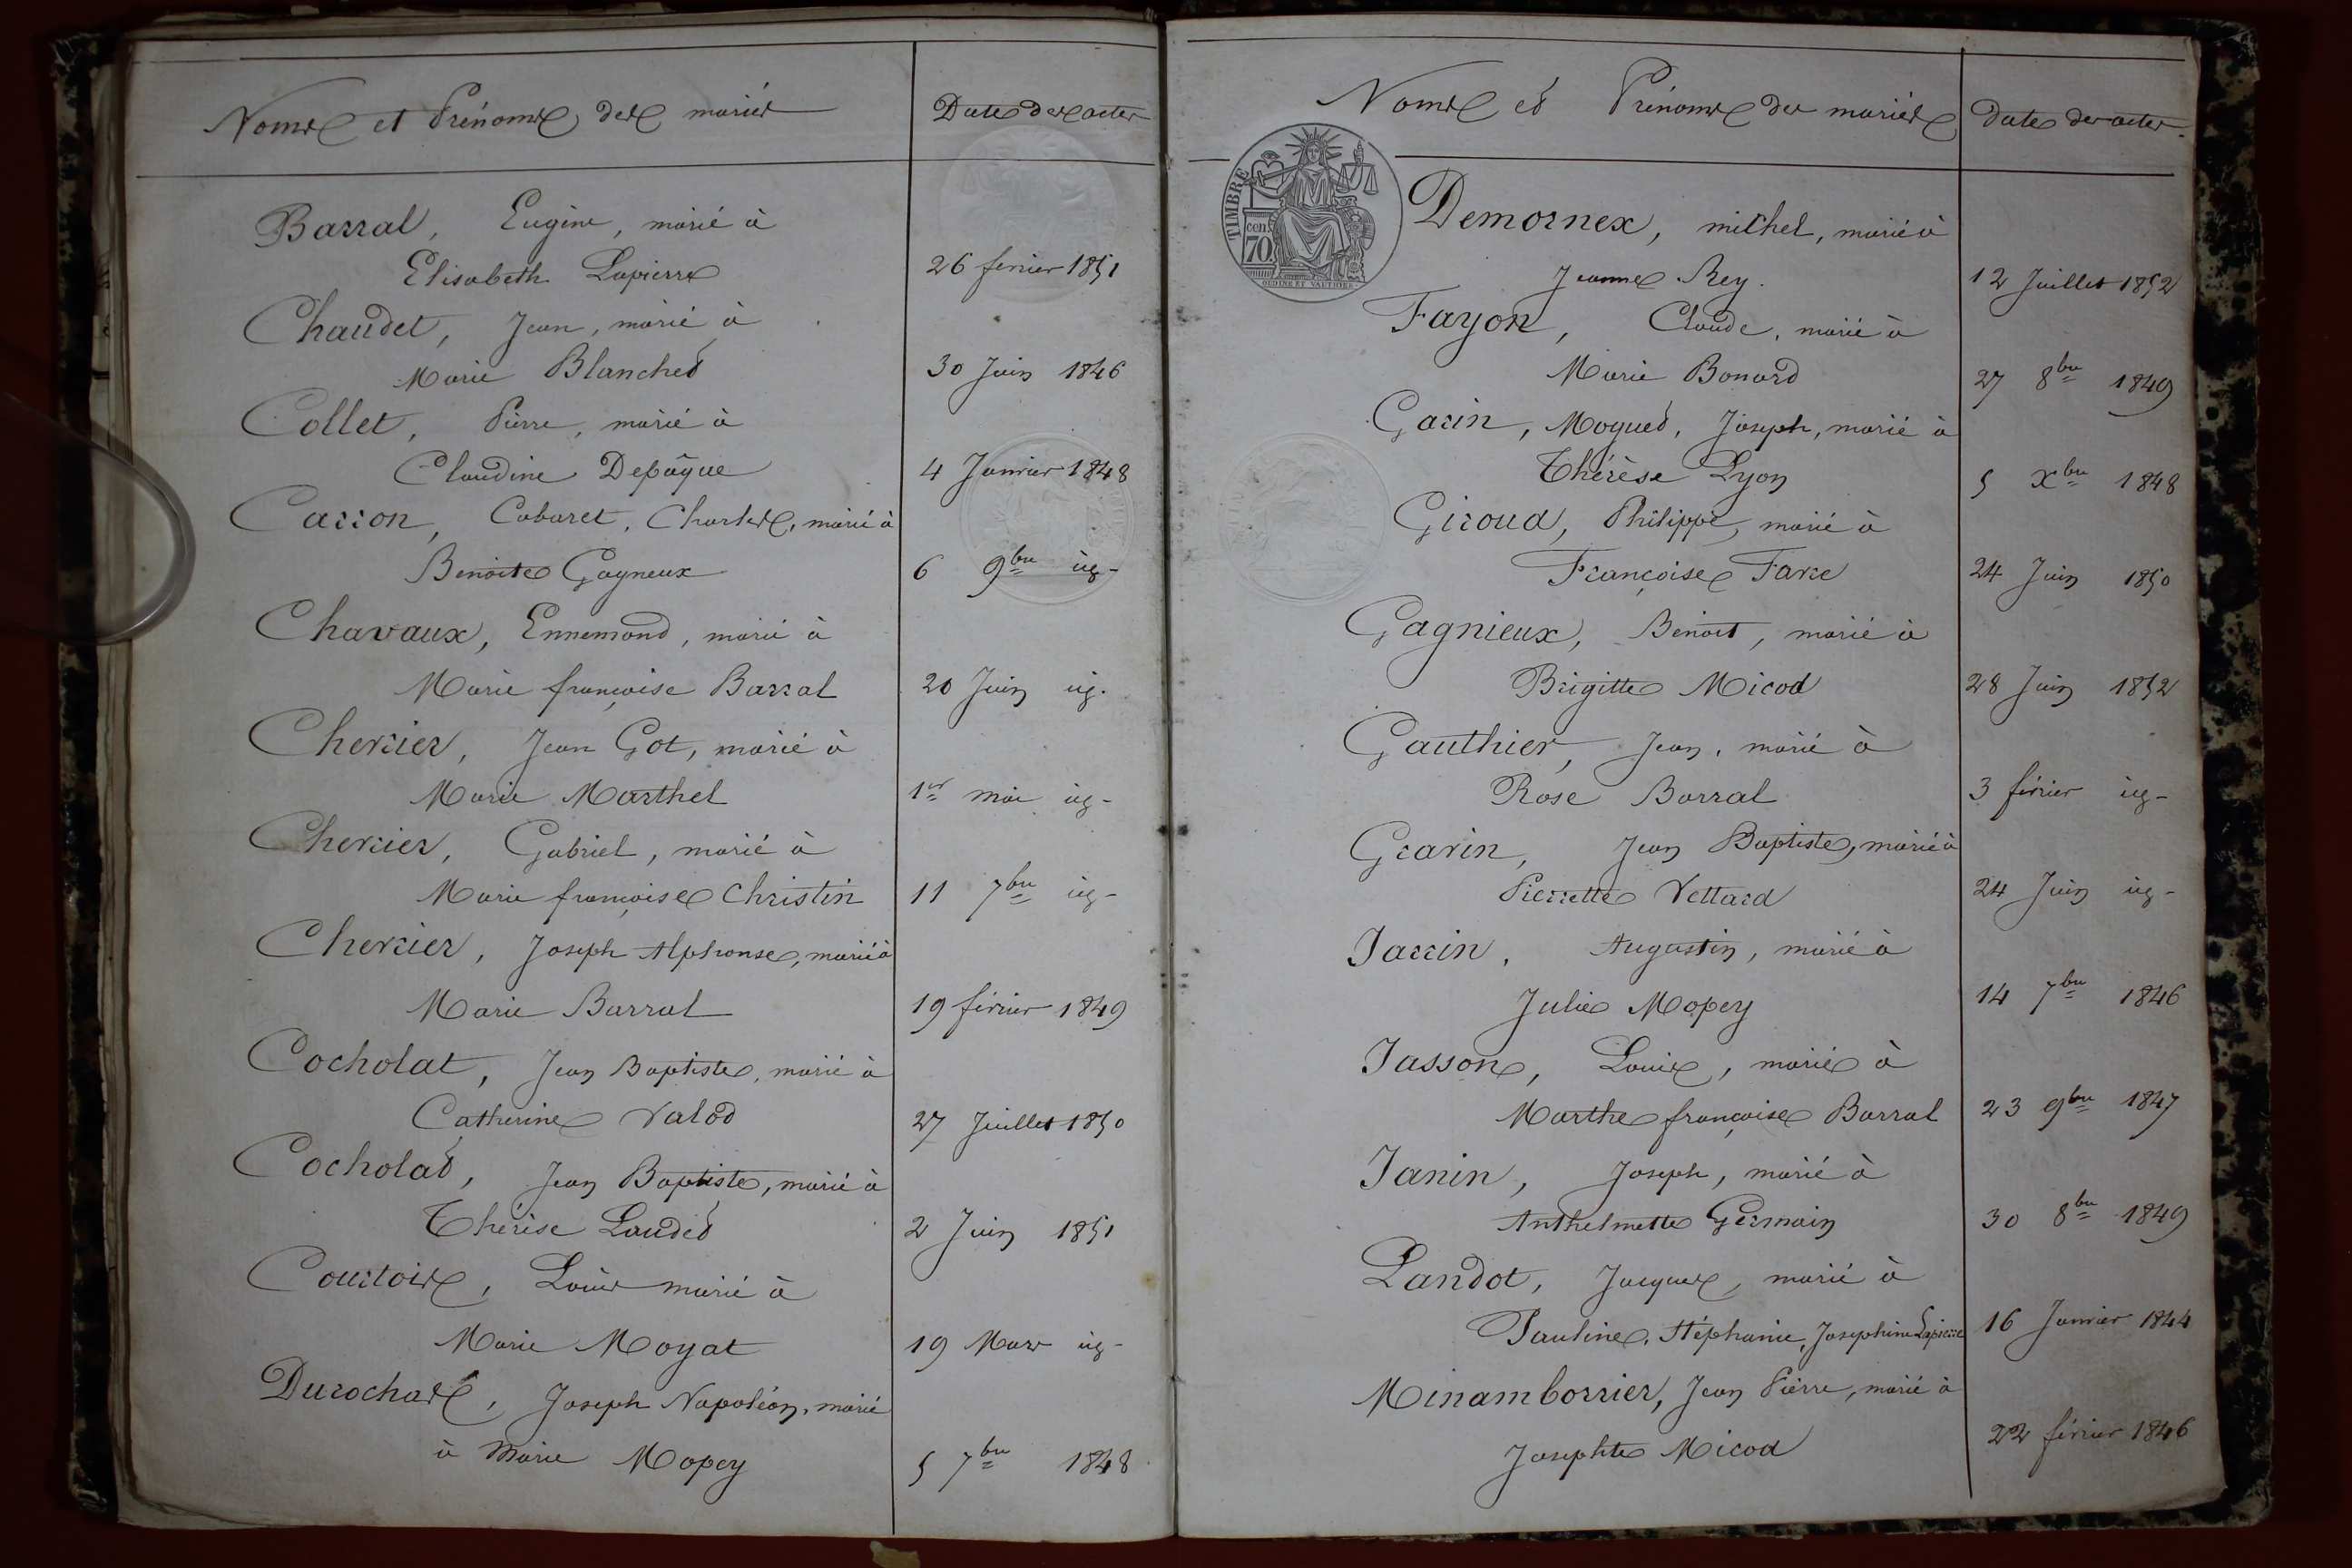 Noms et Prénoms des mariés
Dates des actes
Barral, Eugène, marié à
Elisabeth Lapierre
26 fevrier 1851
Chaudet, Jean, marié à
Marie Blanchet
30 Juin 1846
Collet, Pierre, marié à
Claudine Depâque
4 Janvier 1848
Carron, Cabaret, Charles, marié à
Benoite Gagneux
6 9bre
Chavaux, Ennemond, marié à
Marie françoise Barral
20 Juin
Cherrier, Jean Got, marié à
Marie Marthel
1er mai
Cherrier, Gabriel, marié à
Marie françoise Christin
11 7bre
Cherrier, Joseph Alphonse, marié à
Marie Barral
19 février 1849
Cocholat, Jean Baptiste, marié à
Catherine Valod
27 Juillet 1850
Cocholat, Jean Baptiste, marié à
Thérèse Laudet
2 Juin 1851
Courtois, Louis marié à
Marie Moyat
19 Mars
Durochat, Joseph Napoléon, marié
à Marie Mopey
5 7bre 1848
Noms et Prénoms des mariés
Dates des actes.
TIMBRE
70 cen.
OUDINE ET VAUTHIER
Demornex, michel, marié à
Jeanne Rey.
12 Juillet 1852
Fayon, Claude, marié à
Marie Bonard
27 8bre 1849
Garin, Moguet, Joseph, marié à
Thérèse Lyon
5 Xbre 1848
Giroud, Philippe, marié à
Françoise Farre
24 Juin 1850
Gagnieux, Benoit, marié à
Brigitte Micod
28 Juin 1852
Gauthier, Jean, marié à
Rose Barral
3 février
Gravin, Jean Baptiste, marié à
Pierrette Vettard
24 Juin
Jarrin, Augustin, marié à
Julie Mopey
14 7bre 1846
Jasson, Louis, marié à
Marthe françoise Barral
23 9bre 1847
Janin, Joseph, marié à
Anthelmette Germain
30 8bre 1849
Landot, Jacques, marié à
Pauline, Stéphanie, Josephine Lapierre
16 Janvier 1844
Minamborrier, Jean Pierre, marié à
Josephte Micod
22 février 1846